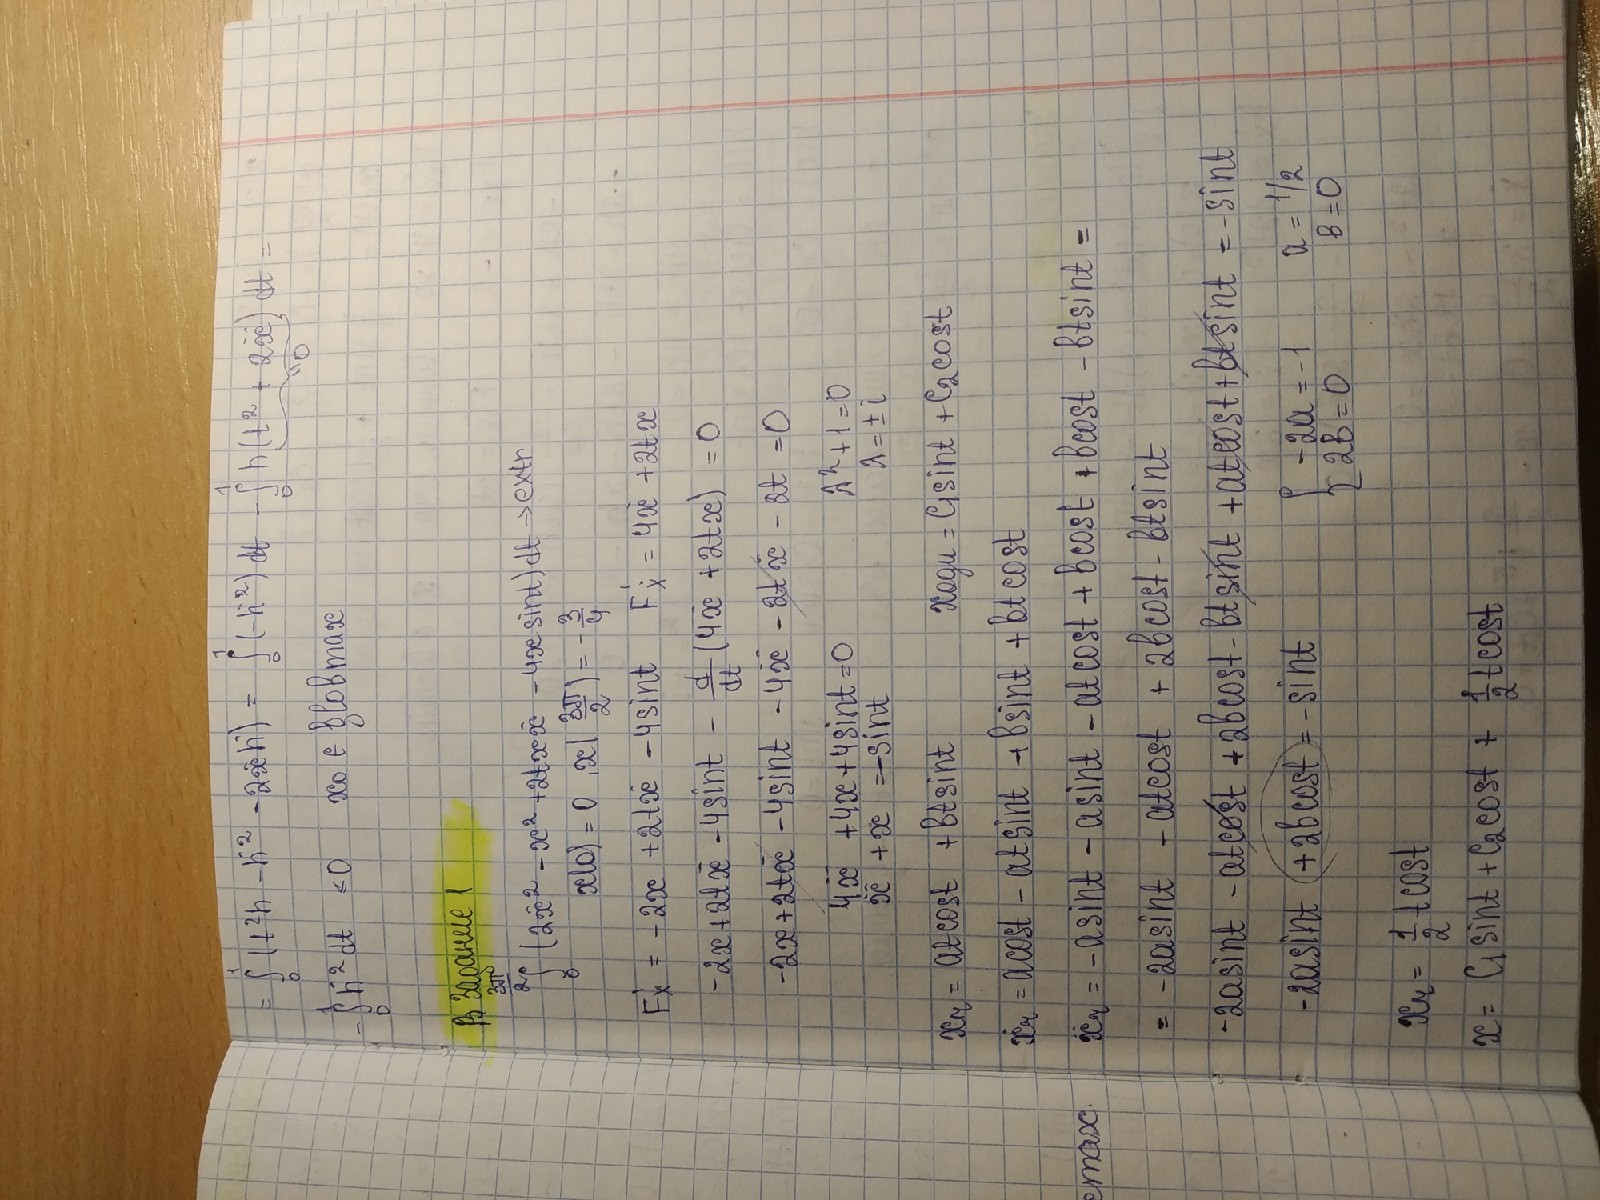 = ∫₀¹ (t²h - ḣ² - 2ẋḣ) = ∫₀¹ (-ḣ²) dt - ∫₀¹ h(t² + 2ẍ) dt =
"0
- ∫₀¹ ḣ² dt ≤ 0 x₀ ∈ globmax
В Задание 1
∫₀^(3π/2) (2ẋ² - x² + 2txẋ - 4x sint) dt → extr
x(0) = 0, x(3π/2) = -3/4
F'ₓ = -2x + 2tẋ - 4sint F'ẋ = 4ẋ + 2tx
-2x + 2tẋ - 4sint - d/dt (4ẋ + 2tx) = 0
-2x + 2tẋ - 4sint - 4ẍ - 2tẋ - 2t = 0
4ẍ + 4x + 4sint = 0 λ² + 1 = 0
ẍ + x = -sint λ = ± i
xч = atcost + btsint xодн = C₁sint + C₂cost
ẋч = acost - atsint + bsint + btcost
emax.
ẍч = -asint - asint - atcost + bcost + bcost - btsint =
= -2asint - atcost + 2bcost - btsint
-2asint - atcost + 2bcost - btsint + atcost + btsint = -sint
-2asint + 2bcost = -sint { -2a = -1 a = 1/2
2b = 0 b = 0
xч = 1/2 tcost
x = C₁sint + C₂cost + 1/2 tcost